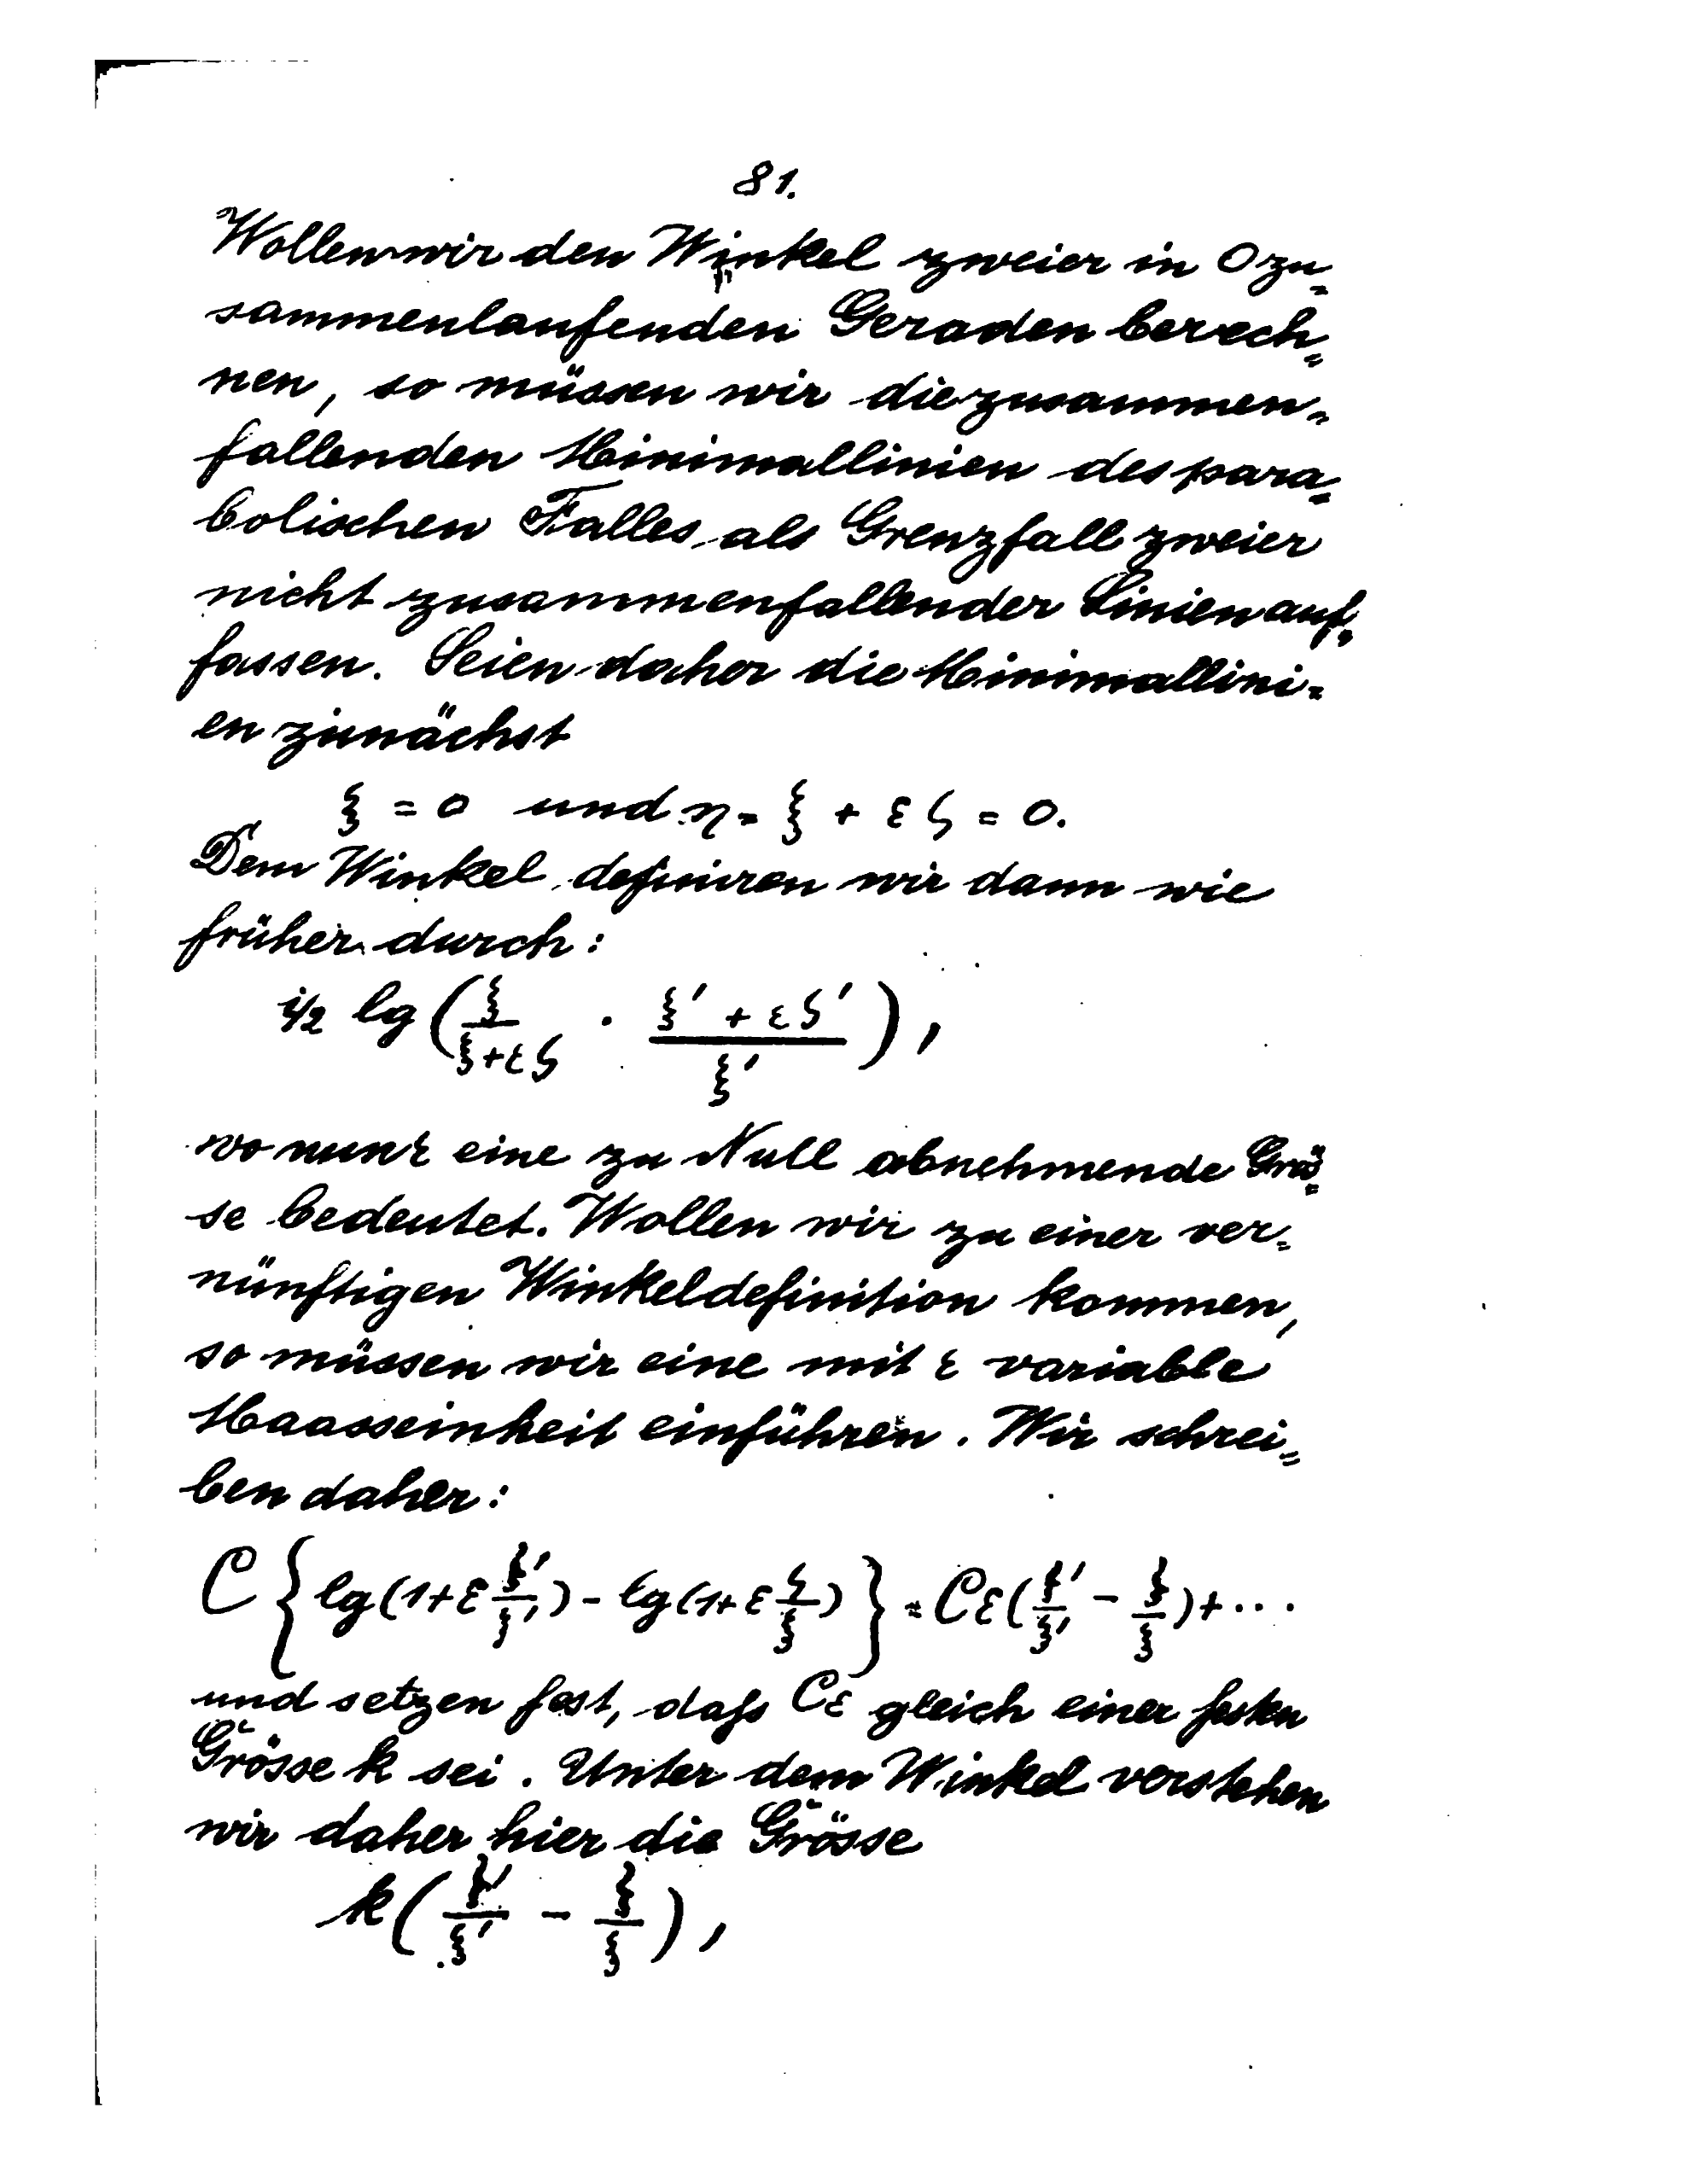 81.
Wollen wir den Winkel zweier in O zu=
sammenlaufenden Geraden berech=
nen, so müssen wir die zusammen=
fallenden Minimallinien des para=
bolischen Falles als Grenzfall zweier
nicht zusammenfallender Linien auf=
fassen. Seien daher die Minimallini=
en zunächst
ξ = 0 und η = ξ + εζ = 0.
Dem Winkel definiren wir dann wie
früher durch:
i/2 lg (ξ/(ξ+εζ) · (ξ' + εζ')/ξ'),
wo nun ε eine zu Null abnehmende Grö=
se bedeutet. Wollen wir zu einer ver=
nünftigen Winkeldefinition kommen,
so müssen wir eine mit ε variable
Maasseinheit einführen. Wir schrei=
ben daher:
C {lg(1+ε ζ'/ξ') - lg(1+ε ζ/ξ)} = Cε(ζ'/ξ' - ζ/ξ)+...
und setzen fest, daſs Cε gleich einer festen
Grösse k sei. Unter dem Winkel verstehen
wir daher hier die Grösse
k(ζ'/ξ' - ζ/ξ),